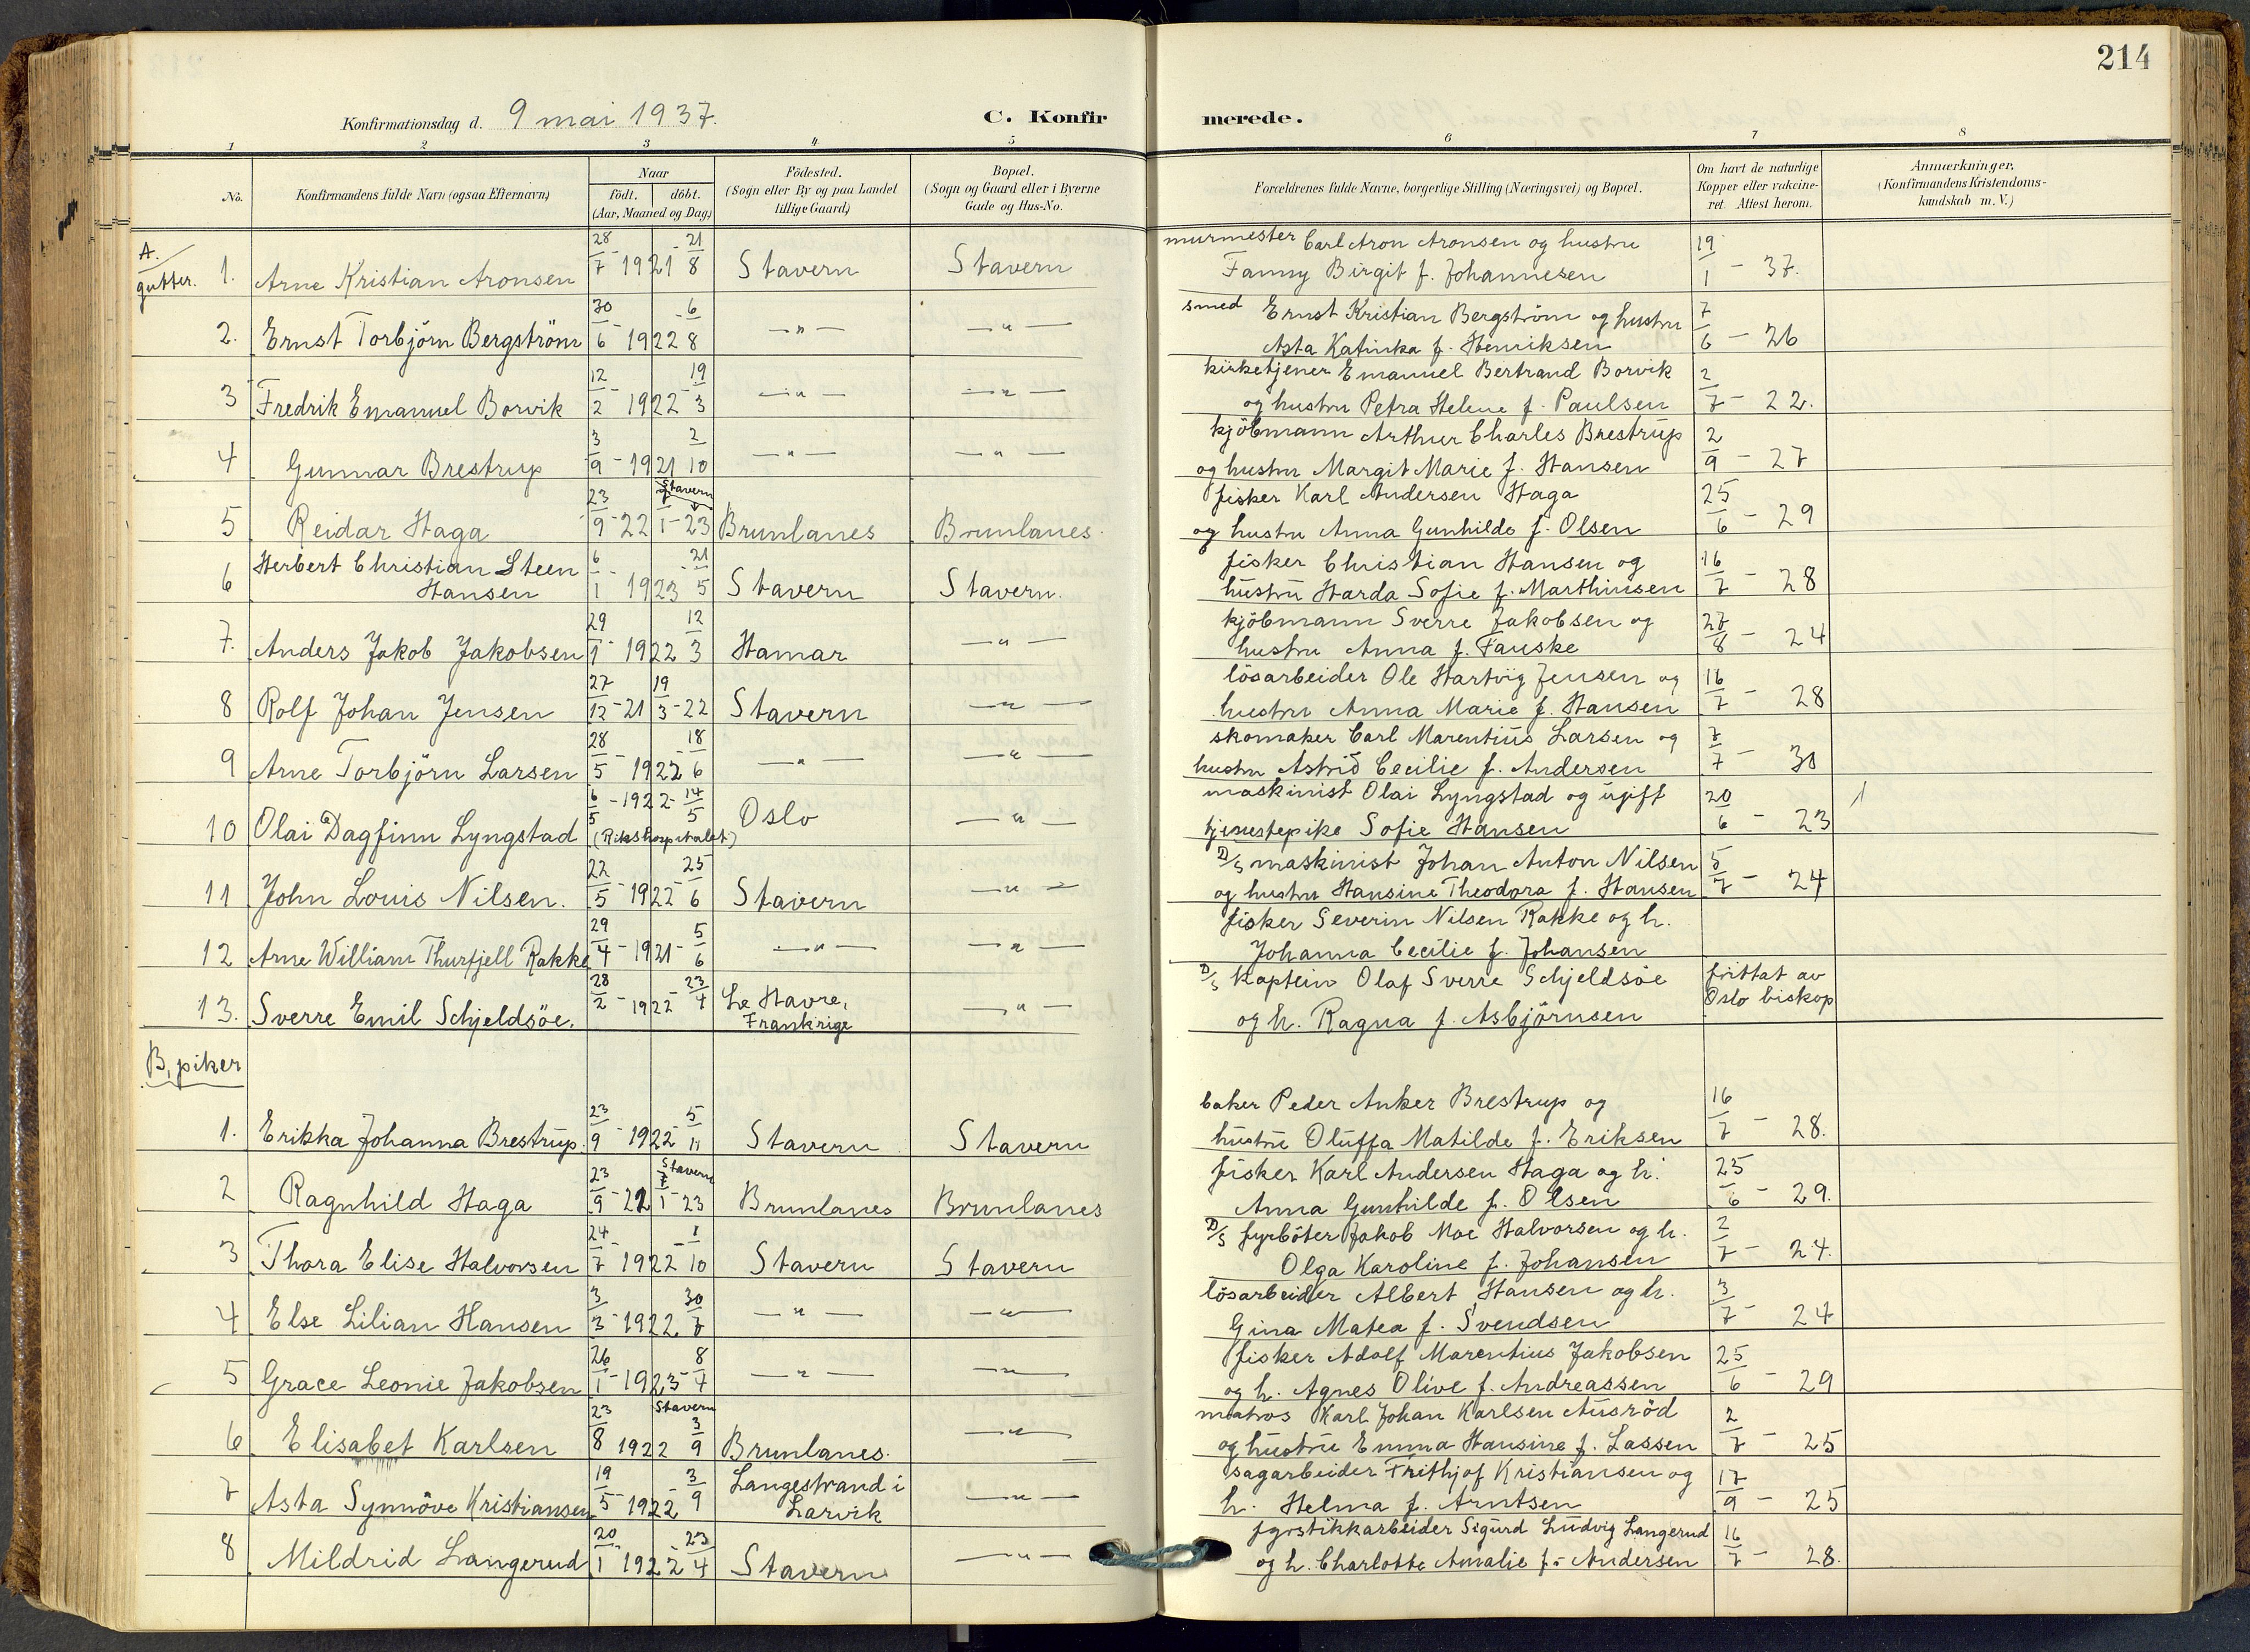 214
Konfirmationsdag d. 9 mai 1937. C. Konfirmerede.
1 2 3 4 5 6 7 8
No. Konfirmandens fulde Navn (ogsaa Efternavn) Naar födt. döbt. (Aar, Maaned og Dag) Födested. (Sogn eller By og paa Landet tillige Gaard) Bopæl. (Sogn og Gaard eller i Byerne Gade og Hus-No. Forældrenes fulde Navne, borgerlige Stilling (Næringsvei) og Bopæl. Om havt de naturlige Kopper eller vakcineret. Attest herom. Anmærkninger. (Konfirmandens Kristendomskundskab m. V.)
A. gutter.
1. Arne Kristian Aronsen 28/7 1921 21/8 Stavern Stavern murmester Carl Aron Aronsen og hustru Fanny Birgit f. Johannesen 19/1 - 37.
2. Ernst Torbjörn Bergström 30/6 1922 6/8 -"- -"- smed Ernst Kristian Bergström og hustru Asta Katinka f. Henriksen 7/6 - 26
3 Fredrik Emanuel Borvik 12/2 1922 19/3 -"- -"- kirketjener Emanuel Bertrand Borvik og hustru Petra Helene f. Paulsen 2/7 - 22.
4 Gunnar Brestrup 3/9 - 1921 2/10 -"- -"- kjöbmann Arthur Charles Brestrup og hustru Margit Marie f. Hansen 2/9 - 27
5 Reidar Haga 23/9 - 22 Stavern 7/1 - 23 Brunlanes Brunlanes. fisker Karl Andersen Haga og hustru Anna Gunhilde f. Olsen 25/6 - 29
6 Herbert Christian Steen Hansen 6/1 1923 21/5 Stavern Stavern. fisker Christian Hansen og hustru Harda Sofie f. Marthinsen 16/7 - 28
7. Anders Jakob Jakobsen 29/1 1922 12/3 Hamar -"- kjöbmann Sverre Jakobsen og hustru Anna f. Fauske 27/8 - 24
8 Rolf Johan Jensen 27/12 - 21 19/3 - 22 Stavern -"- lösarbeider Ole Hartvig Jensen og hustru Anna Marie f. Hansen 16/7 - 28
9 Arne Torbjörn Larsen 28/5 1922 18/6 -"- -"- skomaker Carl Marentius Larsen og hustru Astrid Cecilie f. Andersen 7/7 - 30
10 Olai Dagfinn Lyngstad 6/5 - 1922 - 14/5 (Rikshospitalet) Oslo -"- maskinist Olai Lyngstad og ugift tjenestepike Sofie Hansen 20/6 - 23
11 John Louis Nilsen. 22/5 - 1922 25/6 Stavern -"- D/s maskinist Johan Anton Nilsen og hustru Hansine Theodora f. Hansen 5/7 - 24
12 Arne William Thurfjell Rakke 29/4 - 1921 - 5/6 -"- -"- fisker Severin Nilsen Rakke og h. Johanna Cecilie f. Johansen
13. Sverre Emil Schjeldsöe. 28/2 - 1922 - 23/4 Le Havre, Frankrige -"- D/s kaptein Olaf Sverre Schjeldsöe og h. Ragna f. Asbjörnsen frittat av Oslo biskop
B, piker
1. Erikka Johanna Brestrup. 23/9 - 1922 5/11 Stavern Stavern baker Peder Anker Brestrup og hustru Oluffa Matilde f. Eriksen 16/7 - 28.
2 Ragnhild Haga 23/9 - 22 Stavern 7/1 - 23 Brunlanes Brunlanes fisker Karl Andersen Haga og h. Anna Gunhilde f. Olsen 25/6 - 29.
3 Thora Elise Halvorsen 24/7 1922 1/10 Stavern Stavern D/s fyrböter Jakob Moe Halvorsen og h. Olga Karoline f. Johansen 2/7 - 24.
4 Else Lilian Hansen 3/3 - 1922 30/7 -"- -"- lösarbeider Albert Hansen og h. Gina Matea f. Svendsen 3/7 - 24
5 Grace Leonie Jakobsen 26/1 - 1923 8/7 -"- -"- fisker Adolf Marentius Jakobsen og h. Agnes Olive f. Andreassen 25/6 - 29
6 Elisabet Karlsen 23/8 1922 Stavern 3/9 Brunlanes. -"- matros Karl Johan Karlsen Ausröd og hustru Emma Hansine f. Lassen 2/7 - 25
7 Asta Synnöve Kristiansen 19/5 - 1922 3/9 Langestrand i Larvik -"- sagarbeider Frithjof Kristiansen og h. Helma f. Arntsen 17/9 - 25
8 Mildrid Langerud 20/1 1922 23/4 Stavern -"- fyrstikkarbeider Sigurd Ludvig Langerud og h. Charlotte Amalie f. Andersen 16/7 - 28.